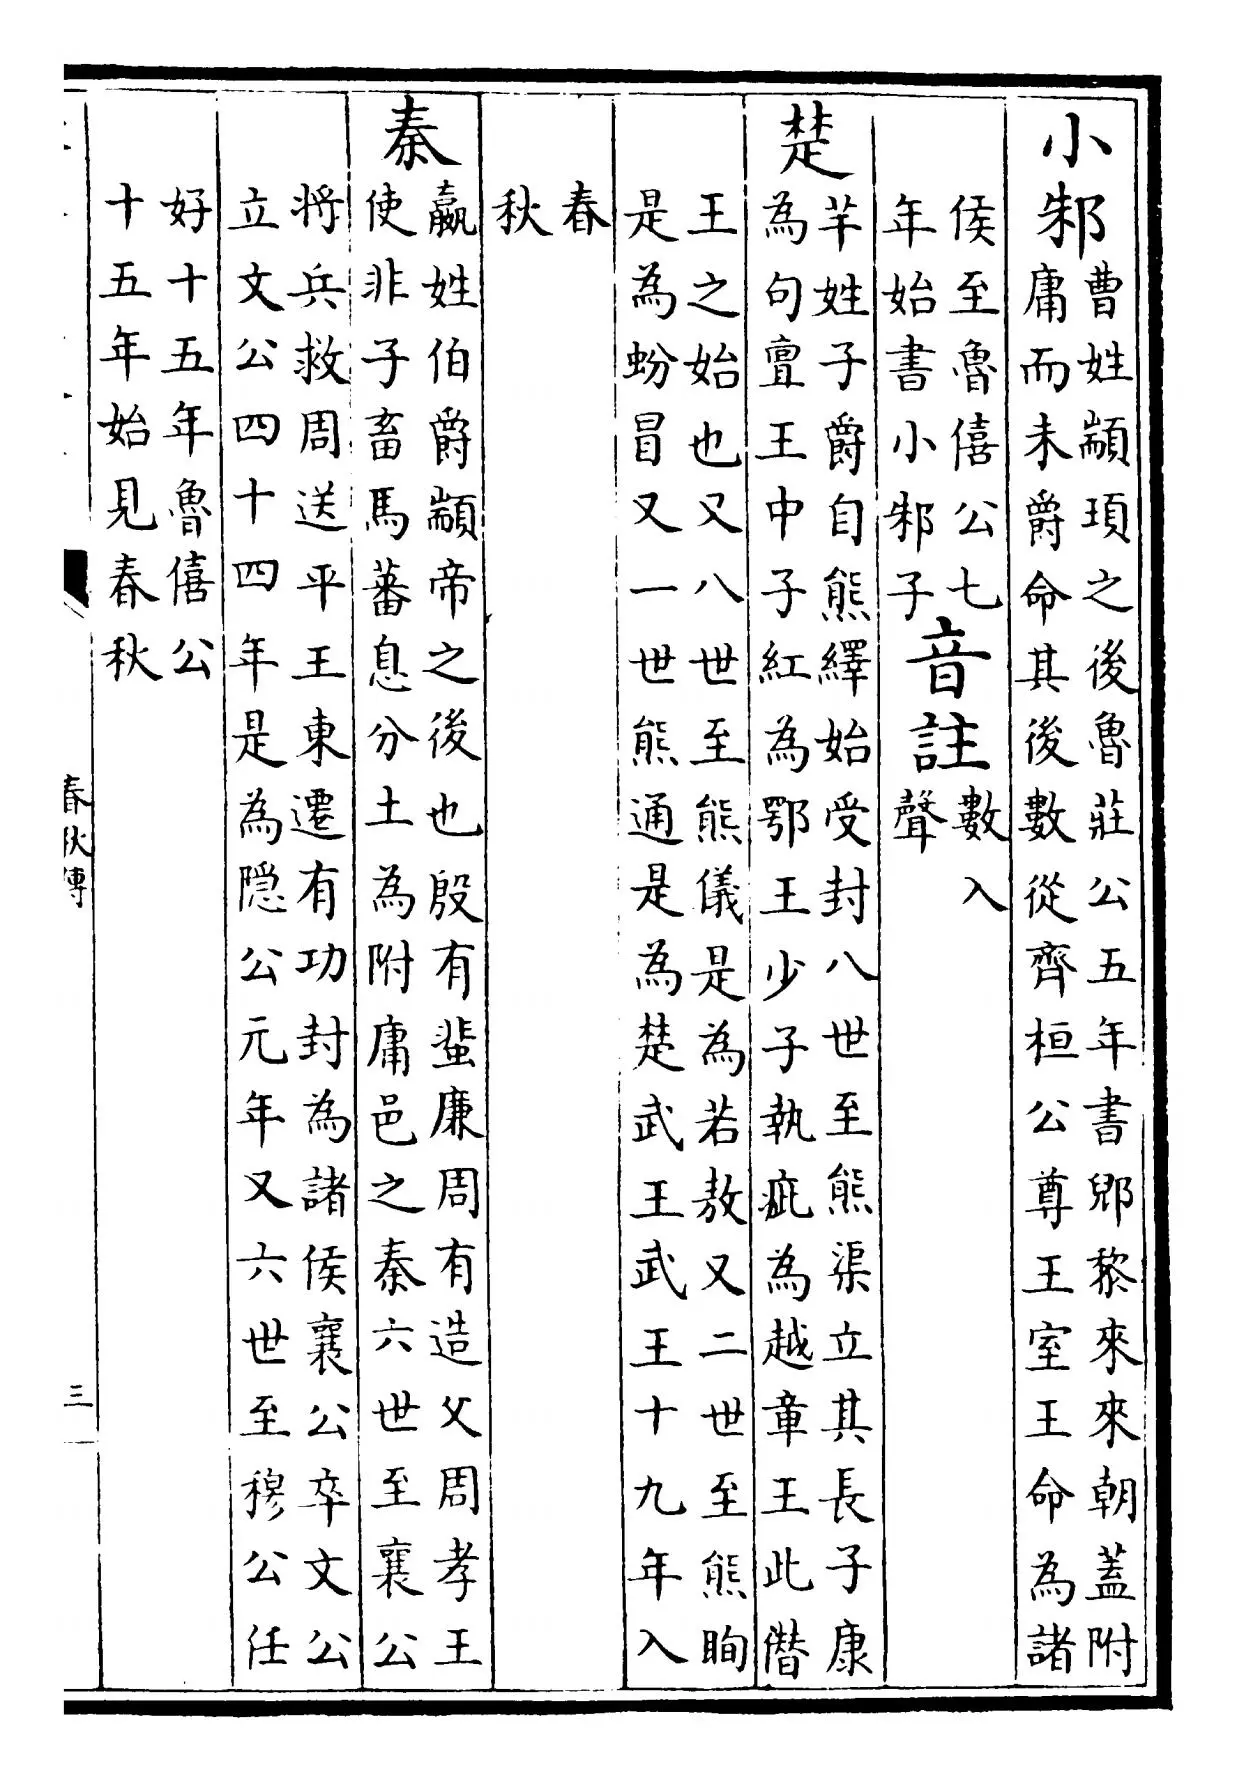 小邾
曹姓顓頊之後魯莊公五年書郳黎來來朝蓋附
庸而未爵命其後數從齊桓公尊王室王命為諸
侯至魯僖公七
年始書小邾子
音註
數入
聲
楚
芊姓子爵自熊繹始受封八世至熊渠立其長子康
為句亶王中子紅為鄂王少子執疵為越章王此僭
王之始也又八世至熊儀是為若敖又二世至熊眴
是為蚡冒又一世熊通是為楚武王武王十九年入
春
秋
秦
嬴姓伯爵顓帝之後也殷有蜚廉周有造父周孝王
使非子畜馬蕃息分土為附庸邑之秦六世至襄公
將兵救周送平王東遷有功封為諸侯襄公卒文公
立文公四十四年是為隠公元年又六世至穆公任
好十五年魯僖公
十五年始見春秋
春秋傳
三